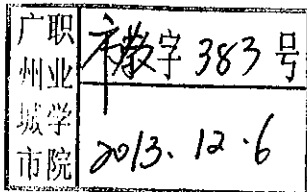 广州城市
职业学院
市教字383号
2013.12.6